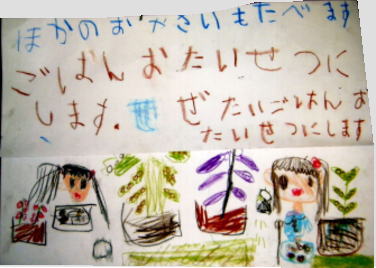 ほかのおやさいもたべます
ごはんおたいせつに
します。ぜ ぜたいごはんお
たいせつにします